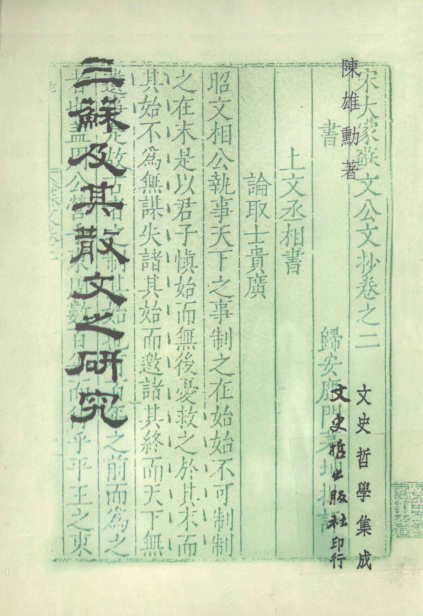 陳雄勳著
三蘇及其散文之研究
文史哲學集成
文史哲出版社印行
宋大家蘇文公文抄卷之二
歸安鹿門茅坤批評
書
上文丞相書
論取士貴廣
昭文相公執事天下之事制之在始始不可制制
之在末是以君子慎始而無後憂救之於其末而
其始不為無謀失諸其始而邀諸其終而天下無
之前而為之
乎平王之東